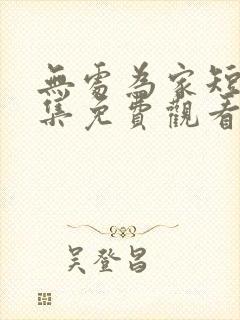 無處為家短
集免費觀看
吴登昌